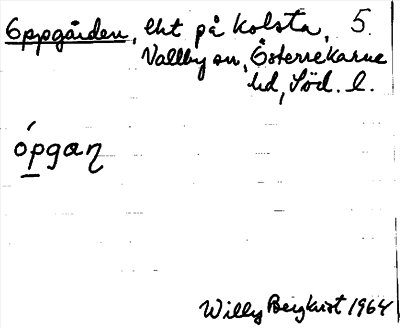 Oppgården, eht på Kolsta, 5.
Vallby sn, Österrekarne
hd, Söd. l.
ópgaɳ
Willy Bergkvist 1964